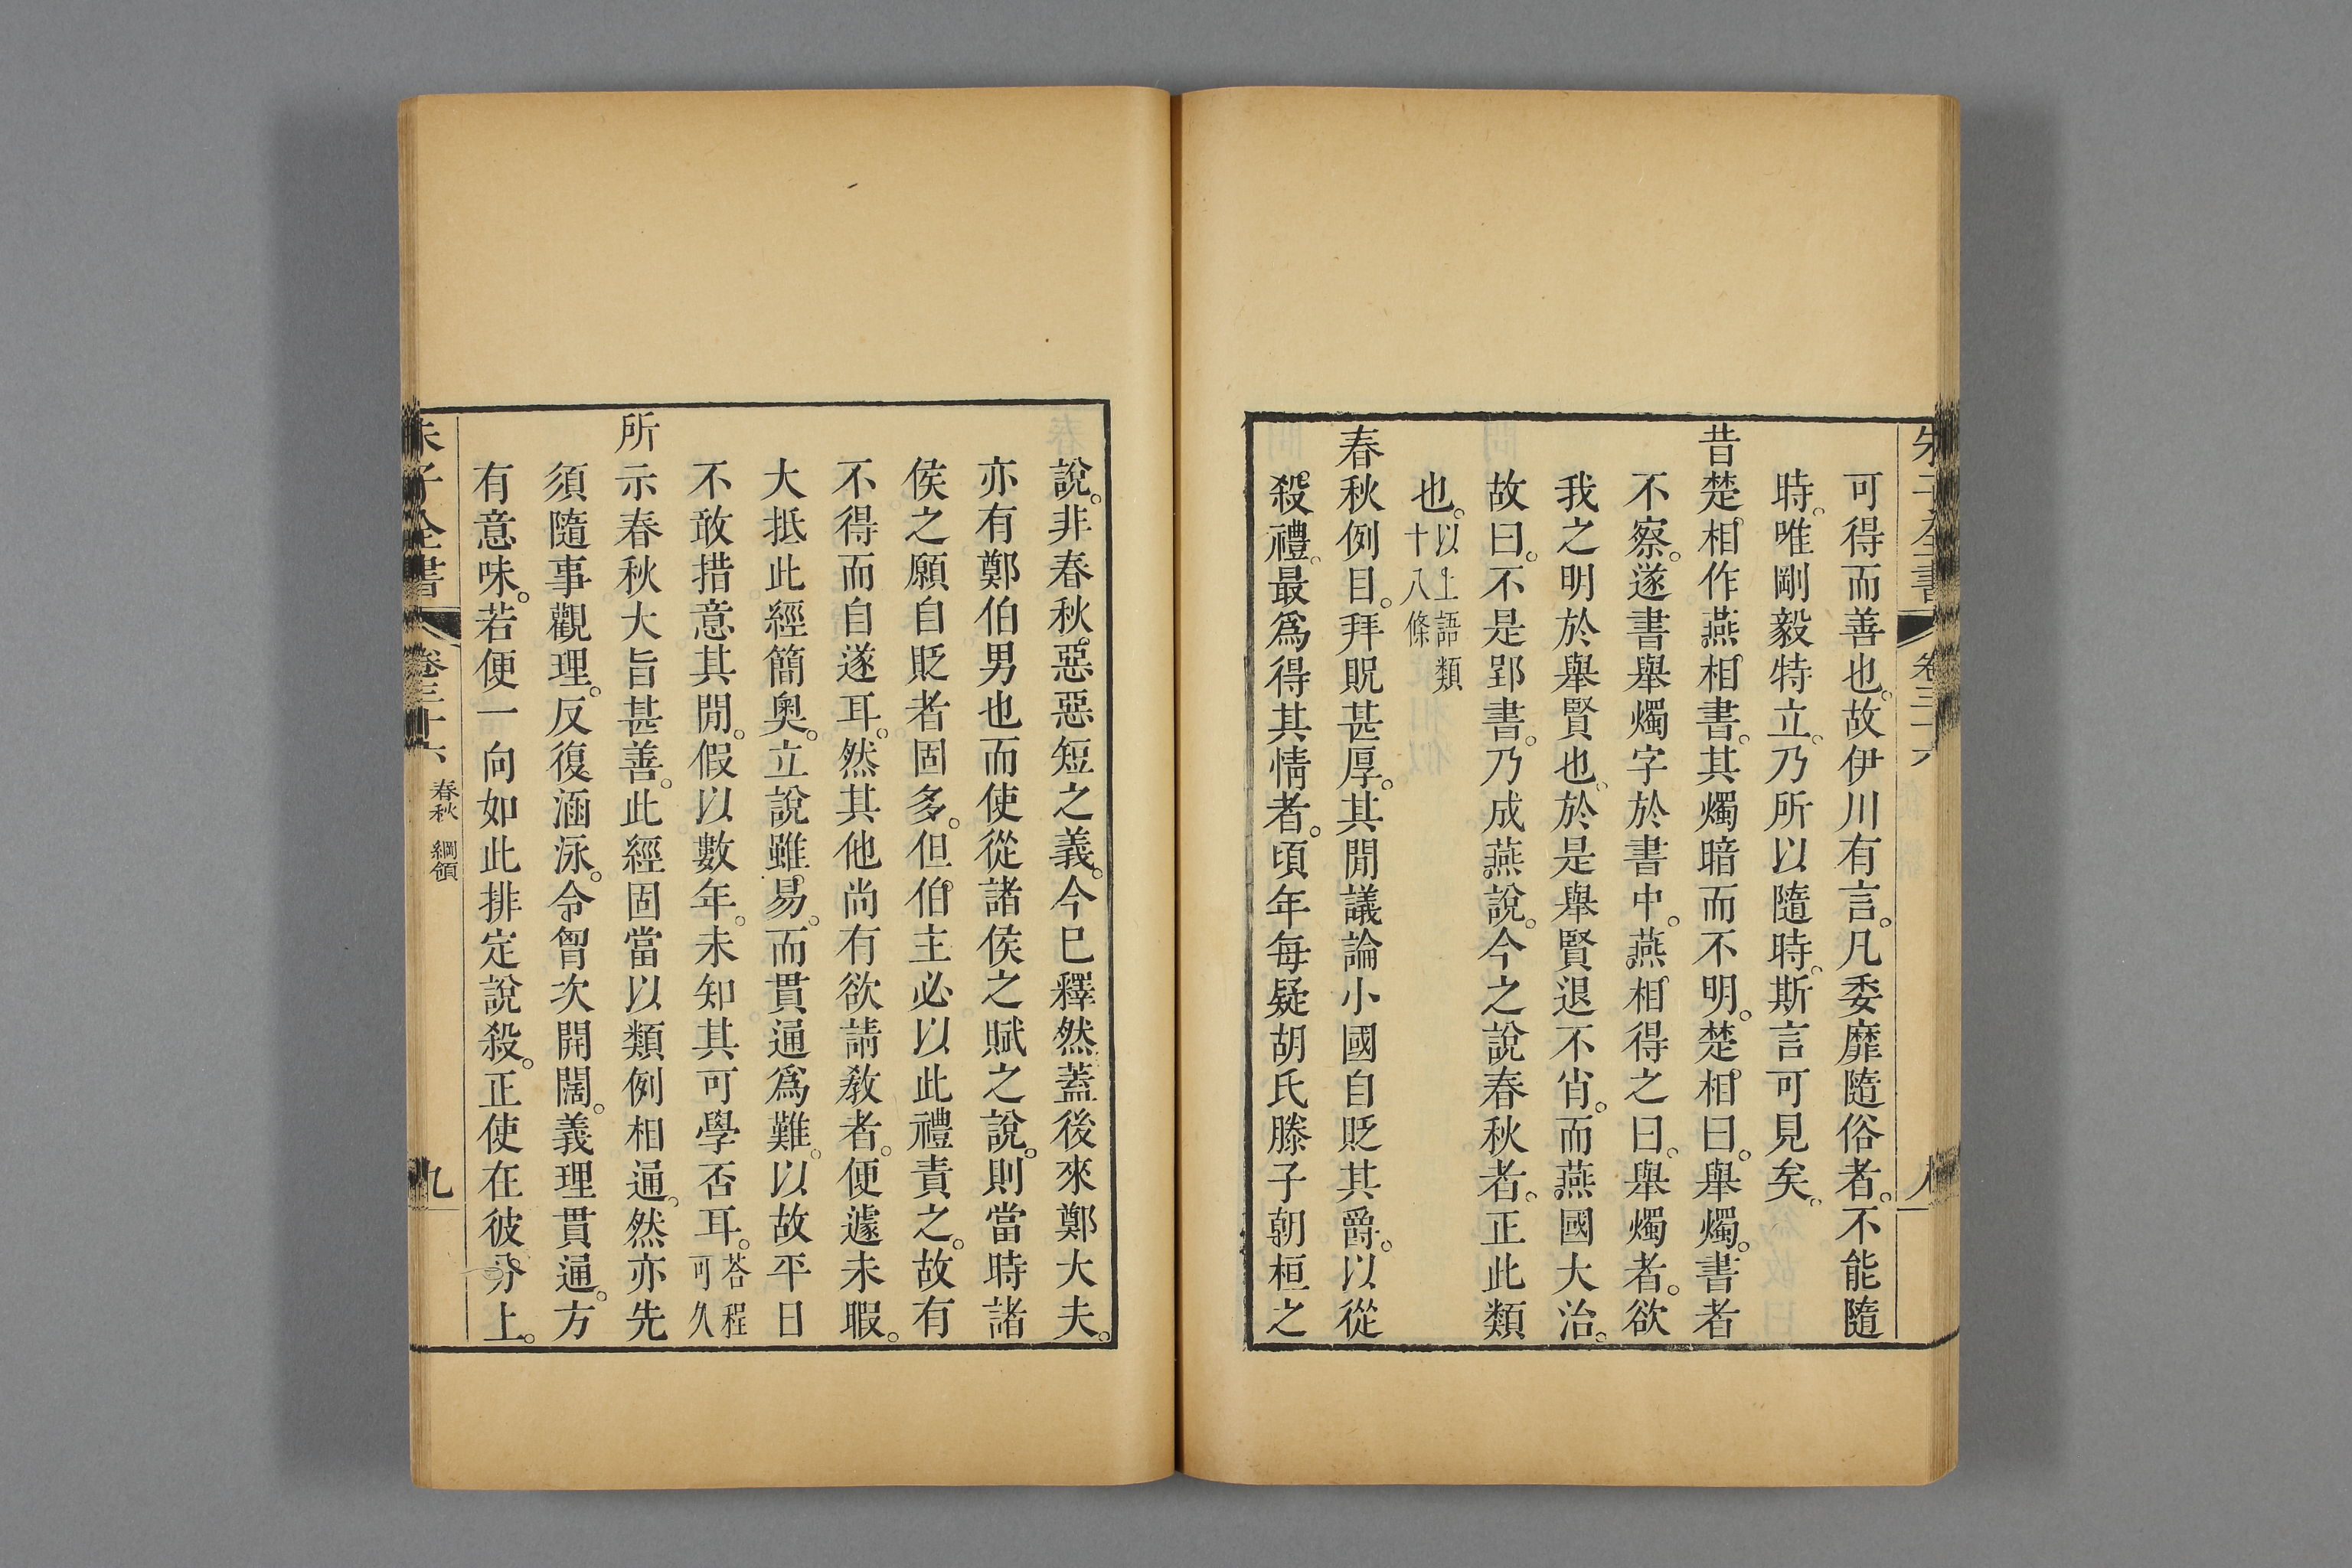 朱子全書 卷三十六 八
可得而善也。故伊川有言。凡委靡隨俗者。不能隨
時。唯剛毅特立。乃所以隨時。斯言可見矣。
昔楚相作燕相書。其燭暗而不明。楚相曰。舉燭。書者
不察。遂書舉燭字於書中。燕相得之曰。舉燭者。欲
我之明於舉賢也。於是舉賢退不肖。而燕國大治。
故曰。不是郢書。乃成燕說。今之說春秋者。正此類
也。以上語類十八條
春秋例目。拜貺甚厚。其閒議論小國自貶其爵。以從
殺禮。最爲得其情者。頃年每疑胡氏滕子朝桓之
說。非春秋惡惡短之義。今已釋然蓋後來鄭大夫。
亦有鄭伯男也而使從諸侯之賦之說。則當時諸
侯之願自貶者固多。但伯主必以此禮責之。故有
不得而自遂耳。然其他尚有欲請敎者。便遽未暇。
大抵此經簡奧。立說雖易。而貫通爲難。以故平日
不敢措意其閒。假以數年。未知其可學否耳。荅程可久
所示春秋大旨甚善。此經固當以類例相通。然亦先
須隨事觀理。反復涵泳。令胷次開闊。義理貫通。方
有意味。若便一向如此排定說殺。正使在彼分上。
朱子全書 卷三十六 春秋 綱領 九